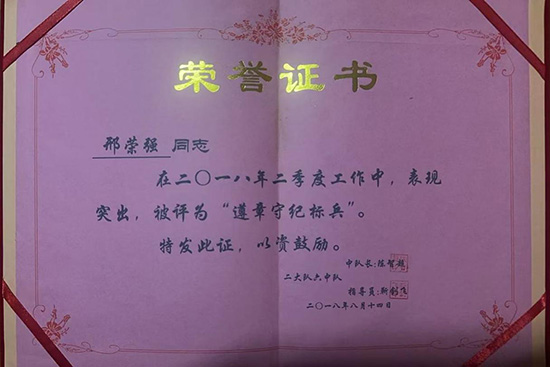 荣誉证书
邢荣强 同志
在二〇一八年二季度工作中，表现
突出，被评为“遵章守纪标兵”。
特发此证，以资鼓励。
中队长：陈智超
二大队六中队
指导员：靳剑飞
二〇一八年八月十四日